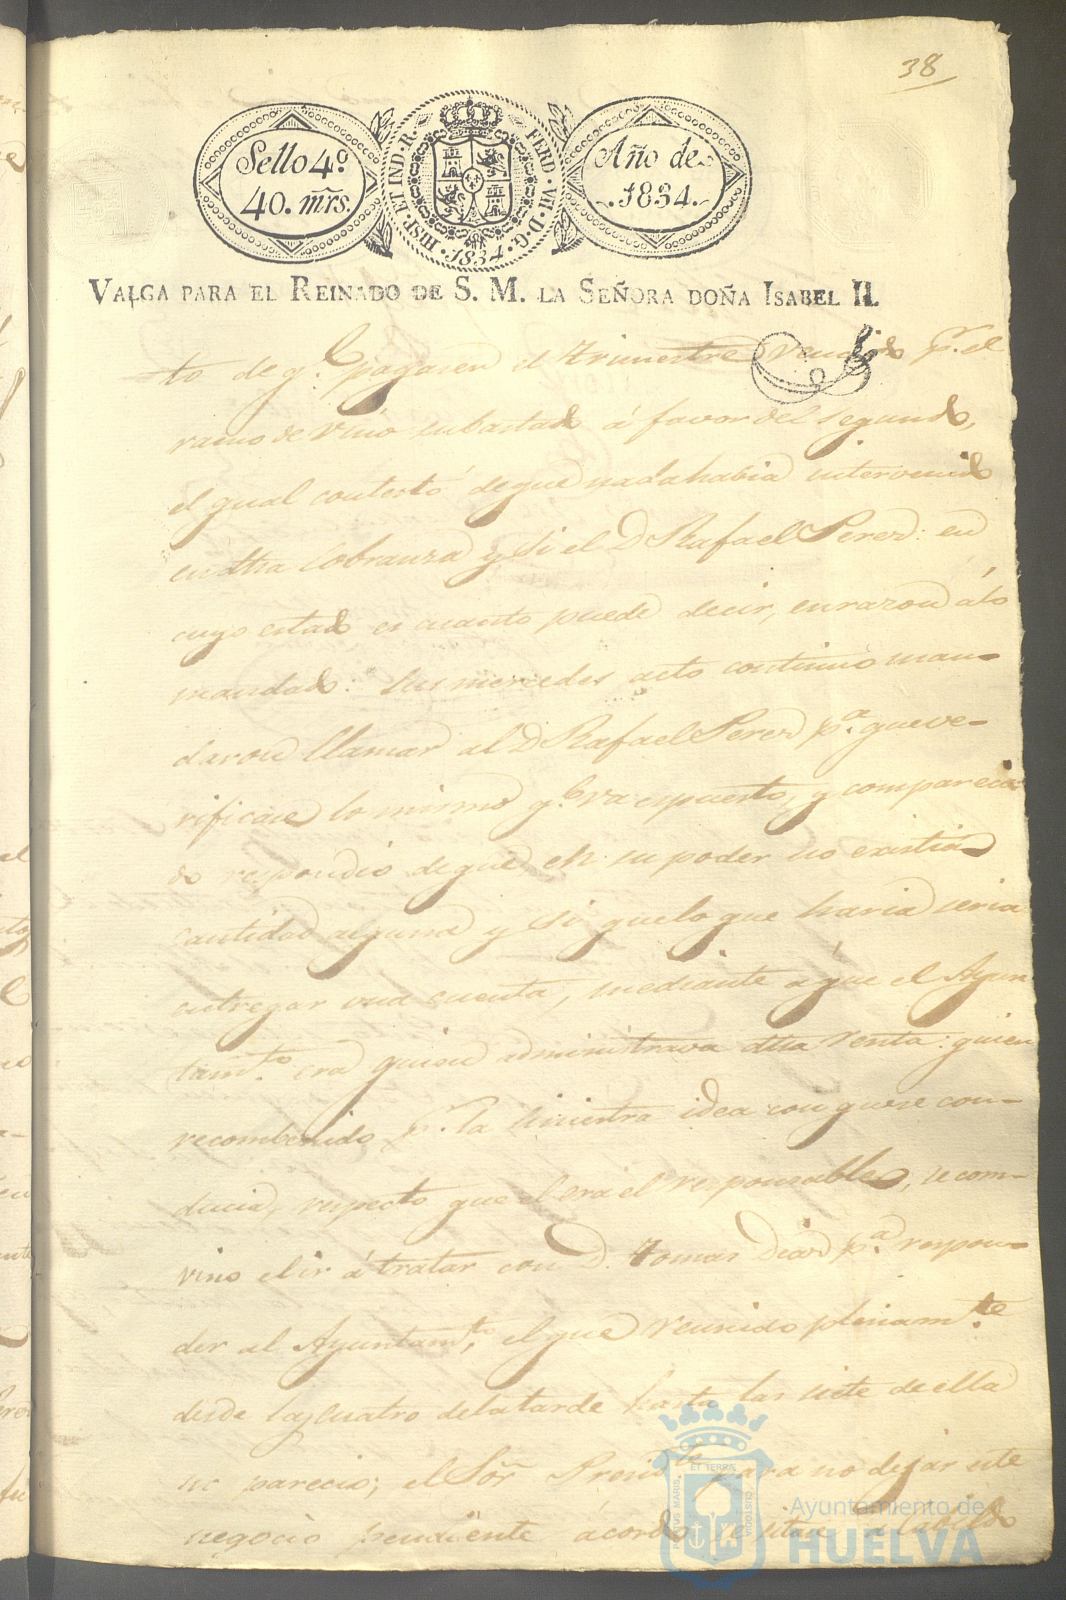 38
Sello 4º
40. mrs.
HISP. ET IND. R. FERD. VII. D. G.
1834
Año de
1834.
VALGA PARA EL REINADO DE S. M. LA SEÑORA DOÑA ISABEL II.
to de q.e pagasen el trimestre vencido p.r el
ramo de vino subastado á favor del segundo,
el qual contestó de que nada habia intervenido
en dha cobranza y si el D Rafael Perez: en
cuyo estado es cuanto puede decir, en razon á lo
mandado. Sus mercedes acto continuo man-
daron llamar al D Rafael Perez p.a que ve-
rificase lo mismo q.e va espuesto, y comparecien
do respondio de que en su poder no existia
cantidad alguna y si que lo que haria seria
entregar una cuenta, mediante á que el Ayun
tam.to era quien administrava dha renta: quien
recombenido p.r la siniestra idea con que se con-
ducia, respecto que el era el responsable, se com-
vino el ir á tratar con D. Tomas Diaz p.a respon-
der al Ayuntam.to, el que reunido plenam.te
desde las cuatro de la tarde hasta las siete de ella
no parecio; el Sor Presid.te para no dejar este
negocio pendiente acordó se citase á Cabildo
PORTUS MARIS ET TERRÆ CUSTODIA
Ayuntamiento de
HUELVA